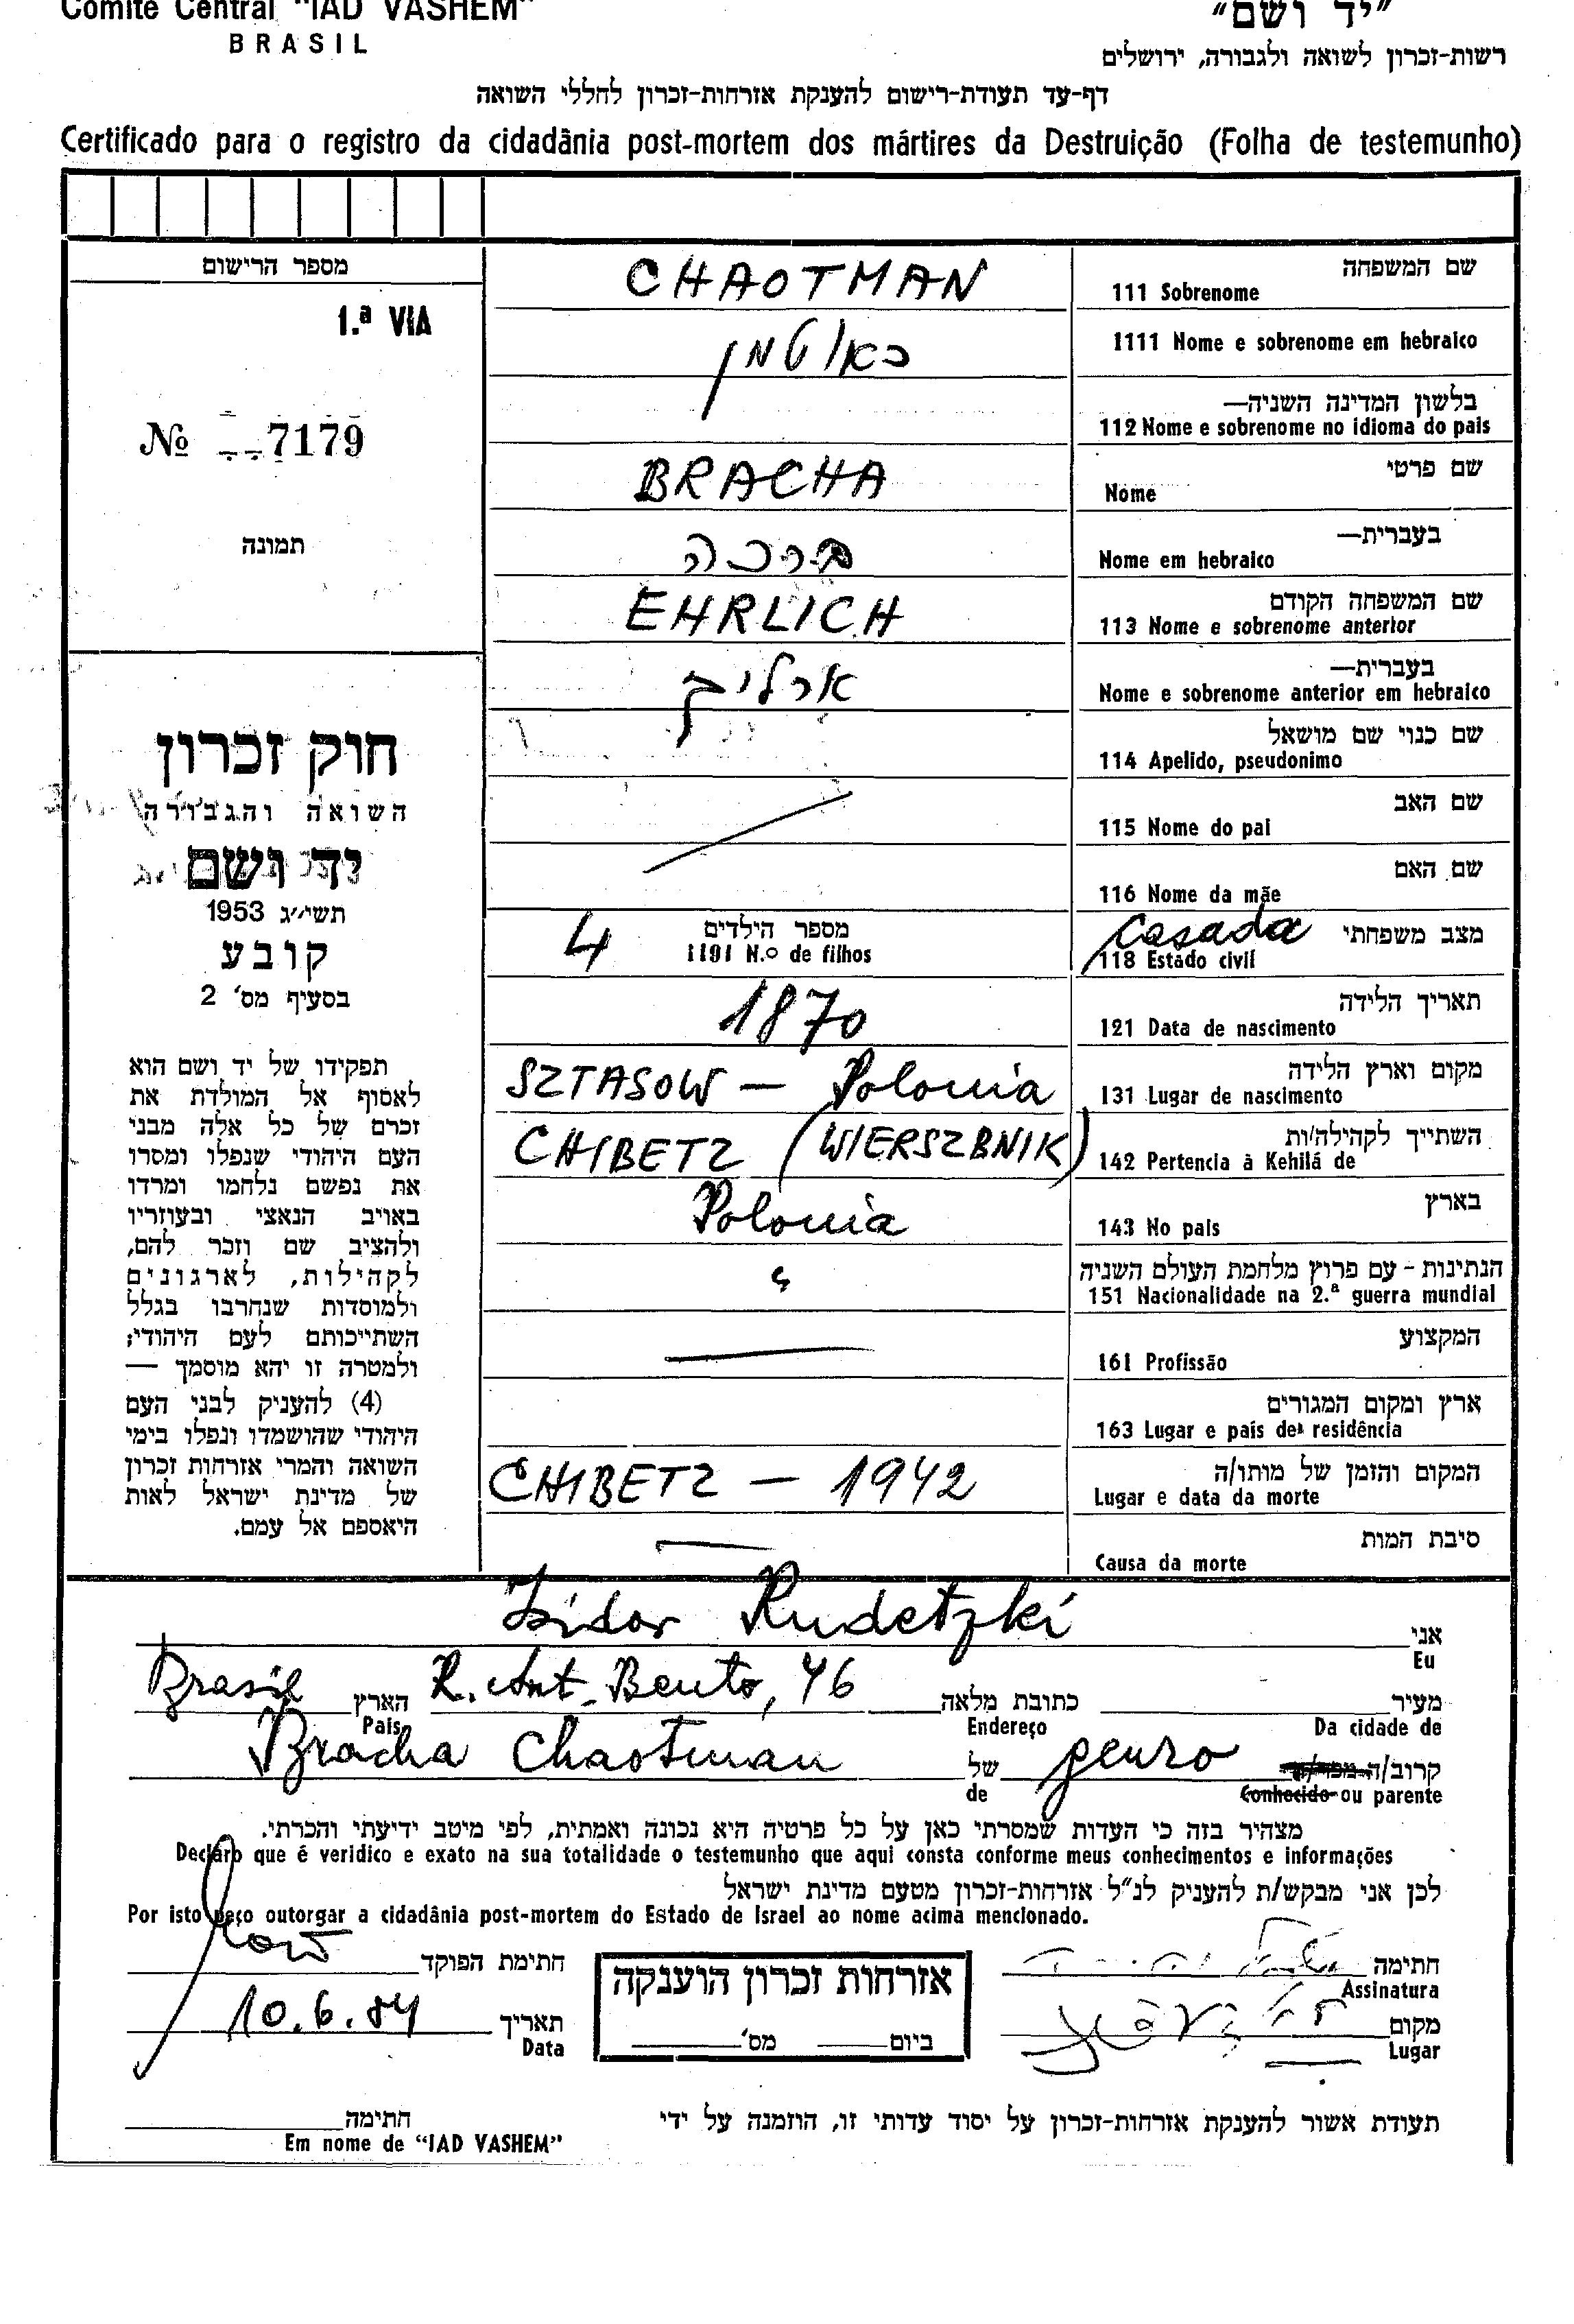 Comite Central "IAD VASHEM"
BRASIL
"יד ושם"
רשות-זכרון לשואה ולגבורה, ירושלים
דף-עד תעודת-רישום להענקת אזרחות-זכרון לחללי השואה
Certificado para o registro da cidadânia post-mortem dos mártires da Destruição (Folha de testemunho)
מספר הרישום
1.ª VIA
№ 7179
תמונה
חוק זכרון
השואה והגבורה
יד ושם
תשי״ג 1953
קובע
בסעיף מס׳ 2
תפקידו של יד ושם הוא
לאסוף אל המולדת את
זכרם של כל אלה מבני
העם היהודי שנפלו ומסרו
את נפשם נלחמו ומרדו
באויב הנאצי ובעוזריו
ולהציב שם וזכר להם,
לקהילות, לארגונים
ולמוסדות שנחרבו בגלל
השתייכותם לעם היהודי;
ולמטרה זו יהא מוסמך —
(4) להעניק לבני העם
היהודי שהושמדו ונפלו בימי
השואה והמרי אזרחות זכרון
של מדינת ישראל לאות
היאספם אל עמם.
שם המשפחה
111 Sobrenome CHAOTMAN
1111 Nome e sobrenome em hebraico כאוטמן
בלשון המדינה השניה—
112 Nome e sobrenome no idioma do pais
שם פרטי
Nome BRACHA
בעברית—
Nome em hebraico ברכה
שם המשפחה הקודם
113 Nome e sobrenome anterior EHRLICH
בעברית—
Nome e sobrenome anterior em hebraico ארליך
שם כנוי שם מושאל
114 Apelido, pseudonimo
שם האב
115 Nome do pai
שם האם
116 Nome da mãe
מצב משפחתי Casada
118 Estado civil
מספר הילדים
1191 N.º de filhos 4
תאריך הלידה
121 Data de nascimento 1870
מקום וארץ הלידה
131 Lugar de nascimento SZTASOW — Polonia
השתייך לקהילה/ות
142 Pertencia à Kehilá de CHIBETZ (WIERSZBNIK)
בארץ
143 No pais Polonia
הנתינות - עם פרוץ מלחמת העולם השניה
151 Nacionalidade na 2.ª guerra mundial
המקצוע
161 Profissão
ארץ ומקום המגורים
163 Lugar e país de residência
המקום והזמן של מותו/ה
Lugar e data da morte CHIBETZ — 1942
סיבת המות
Causa da morte
אני
Eu Isidor Rudetzki
מעיר
Da cidade de
כתובת מלאה R. Ant. Bento, 46
Endereço
הארץ Brasil
Pais
קרוב/ה
Conhecido ou parente genro
של
de Bracha Chaotman
מצהיר בזה כי העדות שמסרתי כאן על כל פרטיה היא נכונה ואמתית, לפי מיטב ידיעתי והכרתי.
Declaro que é veridico e exato na sua totalidade o testemunho que aqui consta conforme meus conhecimentos e informações
לכן אני מבקש/ת להעניק לנ״ל אזרחות-זכרון מטעם מדינת ישראל
Por isto peço outorgar a cidadânia post-mortem do Estado de Israel ao nome acima mencionado.
חתימה
Assinatura
אזרחות זכרון הוענקה
ביום מס׳
חתימת הפוקד
מקום
Lugar
תאריך 10.6.84
Data
תעודת אשור להענקת אזרחות-זכרון על יסוד עדותי זו, הוזמנה על ידי
חתימה
Em nome de "IAD VASHEM"